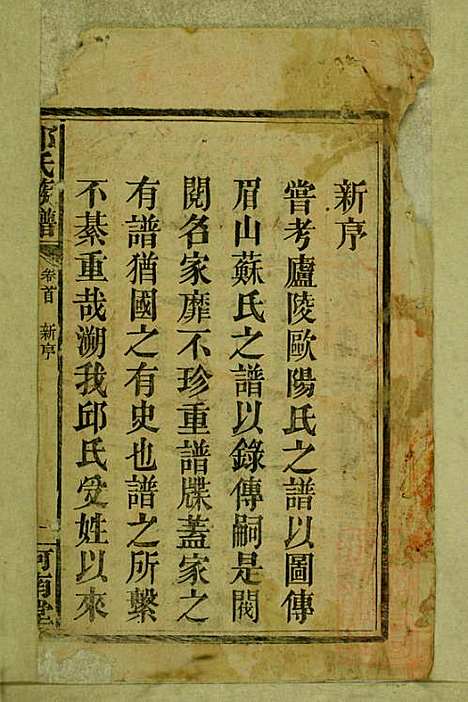 新序
嘗考廬陵歐陽氏之譜以圖傳
眉山蘇氏之譜以錄傳嗣是閥
閱名家靡不珍重譜牒蓋家之
有譜猶國之有史也譜之所繫
不綦重哉溯我邱氏受姓以來
邱氏族譜
卷首 新序
河南堂